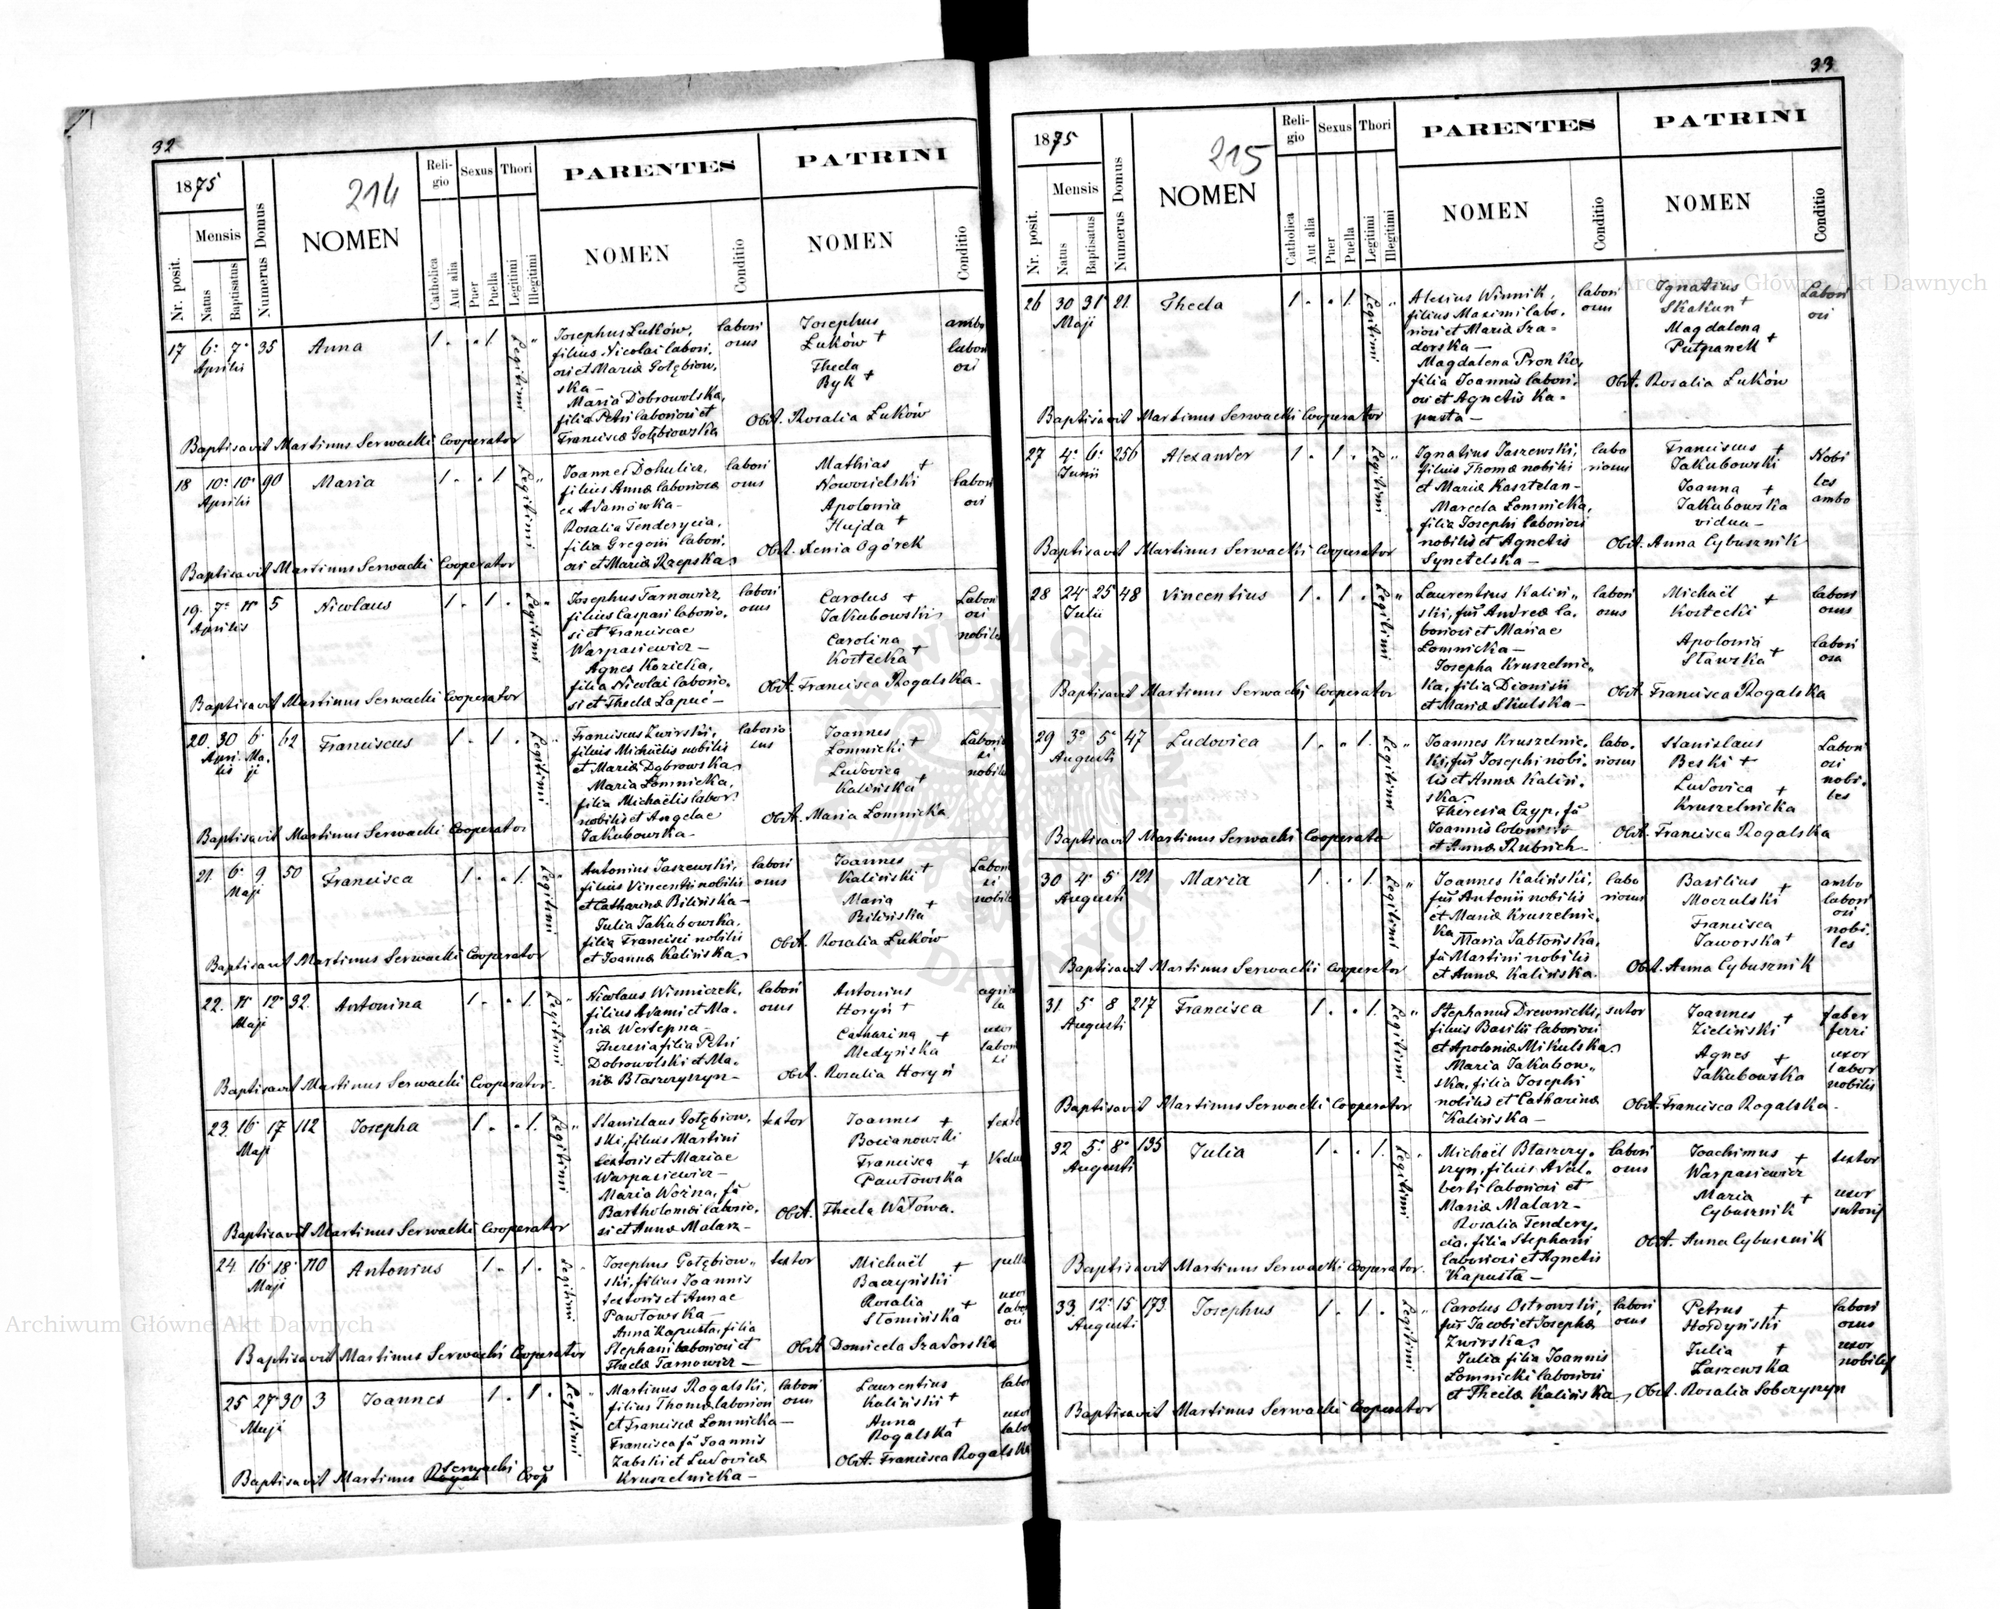 32
1875
214
Nr. posit.
Mensis
Natus
Baptisatus
Numerus Domus
NOMEN
Reli-
gio
Catholica
Aut alia
Sexus
Puer
Puella
Thori
Legitimi
Illegitimi
PARENTES
NOMEN
Conditio
PATRINI
NOMEN
Conditio
17 6. 7. 35 Anna 1. . . 1. Legitimi "
Aprilis
Josephus Łuków,
filius Nicolai labori.
osi et Mariæ Gołębiow.
ska —
Maria Dobrowolska,
filia Petri laboriosi et
Franciscæ Gołębiowska
labori
osus
Josephus
Łuków +
Thecla
Byk +
ambo
labori
osi
Obst. Rosalia Łuków
Baptisavit Martinus Serwacki Cooperator
18 10. 10. 90 Maria 1. . . 1. Legitimi "
Aprilis
Joannes Dohulicz,
filius Annæ laboriosæ
ex Adamówka —
Rosalia Tenderycia,
filia Gregorii labori.
osi et Mariæ Rzepska.
labori
osus
Mathias +
Nowosielski
Apolonia
Hujda +
labori
osi
Obst. Xenia Ogórek
Baptisavit Martinus Serwacki Cooperator
19. 7. 11. 5 Nicolaus 1. . 1. . Legitimi "
Aprilis
Josephus Tarnowicz,
filius Caspari laborio.
si et Franciscae
Warpasiewicz —
Agnes Kozicka,
filia Nicolai laborio.
si et Theclæ Łapuć —
labori
osus
Carolus +
Jakubowski
Carolina
Kostecka +
Labori
osi
nobiles
Obst. Francisca Rogalska.
Baptisavit Martinus Serwacki Cooperator
20. 30 6. 62 Franciscus 1. . 1. . Legitimi "
Apri. Ma.
lis ji
Franciscus Zwirski,
filius Michaëlis nobilis
et Mariæ Dąbrowska.
Maria Łomnicka,
filia Michaëlis labor.
nobilis et Angelae
Jakubowska —
laborio
sus
Joannes
Łomnicki +
Ludovica
Kalińska +
Laborio
si
nobiles
Obst. Maria Łomnicka
Baptisavit Martinus Serwacki Cooperator
21. 6. 9 50 Francisca 1. . . 1. Legitimi "
Maji
Antonius Jaszewski,
filius Vincentii nobilis
et Catharinæ Bilińska —
Julia Jakubowska,
filia Francisci nobilis
et Joannæ Kalińska.
labori
osus
Joannes
Kaliński +
Maria
Bilińska +
Obst. Rosalia Łuków
Baptisavit Martinus Serwacki Cooperator
22. 11. 12. 32. Antonina 1. . . 1. Legitimi "
Maji
Nicolaus Winniczek,
filius Adami et Ma.
riæ Wertepna —
Theresia filia Petri
Dobrowolski et Ma.
riæ Błaszczyszyn —
labori
osus
Antonius
Horyń +
Catharina +
Medyńska
Obst. Rosalia Horyń
Baptisavit Martinus Serwacki Cooperator.
23. 16. 17 112 Josepha 1. . . 1. Legitimi "
Maji
Stanislaus Gołębiow.
ski, filius Martini
textoris et Mariae
Warpasiewicz —
Maria Woźna, fa
Bartholomæi laborio.
si et Annæ Malarz —
textor
Joannes +
Bocianowski
Francisca +
Pawłowska
Obst. Thecla Watowa.
Baptisavit Martinus Serwacki Cooperator
24. 16. 18. 110 Antonius 1. . 1. . Legitimi "
Maji
Josephus Gołębiow„
ski, filius Joannis
textoris et Annae
Pawłowska —
Anna Kapusta, filia
Stephani laboriosi et
Theclæ Tarnowicz —
textor
Michaël +
Baczyński
Rosalia +
Słomińska
Obst. Domicela Szadorska
Baptisavit Martinus Serwacki Cooperator
25 27. 30 3 Joannes 1. . 1. . Legitimi "
Maji
Martinus Rogalski,
filius Thomæ laboriosi
et Franciscæ Łomnicka —
Francisca fa Joannis
Zabski et Ludovicæ
Kruszelnicka —
labori
osus
Laurentius
Kaliński +
Anna +
Rogalska
Obst. Francisca Rogalska
Baptisavit Martinus Serwacki Coop
33
1875
215
Nr. posit.
Mensis
Natus
Baptisatus
Numerus Domus
NOMEN
Reli-
gio
Catholica
Aut alia
Sexus
Puer
Puella
Thori
Legitimi
Illegitimi
PARENTES
NOMEN
Conditio
PATRINI
NOMEN
Conditio
26 30 31. 21. Thecla 1. . . 1. Legitimi "
Maji
Alexius Winnik,
filius Maximi labo.
riosi et Maria Sza=
dorska —
Magdalena Pronko,
filia Joannis labori.
osi et Agnetis Ka=
pusta —
labori
osus
Ignatius
Skakun +
Magdalena
Putpanek +
Labori
osi
Obst. Rosalia Łuków
Baptisavit Martinus Serwacki Cooperator
27 4. 6. 256 Alexander 1. . 1. . Legitimi "
Junii
Ignatius Jaszewski,
filius Thomæ nobilis
et Mariæ Kasztelan —
Marcela Łomnicka,
filia Josephi laboriosi
nobilis et Agnetis
Synetelska —
labo
riosus
Franciscus +
Jakubowski
Joanna +
Jakubowska
vidua —
Nobi
les
ambo
Obst. Anna Cybusznik
Baptisavit Martinus Serwacki Cooperator
28 24. 25. 48 Vincentius 1. . 1. . Legitimi "
Julii
Laurentius Kaliń„
ski, fus Andreæ la.
boriosi et Mariae
Łomnicka —
Josepha Kruszelnic„
ka, filia Dionisii
et Mariæ Skulska —
labori
osus
Michaël
Kostecki +
Apolonia
Stawska +
labori
osus
labori
osa
Obst. Francisca Rogalska
Baptisavit Martinus Serwacki Cooperator
29 3. 5. 47 Ludovica 1. . . 1. Legitimi "
Augusti
Joannes Kruszelnic.
ki, fus Josephi nobi.
lis et Annæ Kaliń.
ska.
Theresia Czyp, fa
Joannis Colonisto
et Annæ Rubrich —
labo.
riosus
Stanislaus
Beski +
Ludovica +
Kruszelnicka
Labori
osi
nobi.
les
Obst. Francisca Rogalska
Baptisavit Martinus Serwacki Cooperato
30 4. 5. 121 Maria 1. . . 1. Legitimi "
Augusti
Joannes Kaliński,
fus Antonii nobilis
et Mariæ Kruszelnic.
ka — Maria Jabłońska,
fa Martini nobilis
et Annæ Kalińska.
labo
riosus
Basilius +
Moczulski
Francisca
Jaworska +
ambo
labori
osi
nobi.
les
Obst. Anna Cybusznik
Baptisavit Martinus Serwacki Cooperator
31. 5. 8 217 Francisca 1. . . 1. Legitimi "
Augusti
Stephanus Drewnicki,
filius Basilii laboriosi
et Apoloniæ Mikulska.
Maria Jakubow„
ska, filia Josephi
nobilis et Catharinæ
Kalińska —
sutor
Joannes +
Zieliński
Agnes +
Jakubowska
faber
ferri
uxor
labor
nobilis
Obst. Francisca Rogalska.
Baptisavit Martinus Serwacki Cooperator
32 5. 8. 135 Julia 1. . . 1. Legitimi "
Augusti
Michaël Błaszczy.
szyn, filius Adal.
berti laboriosi et
Mariæ Malarz —
Rosalia Tendery.
cia, filia Stephani
laboriosi et Agnetis
Kapusta —
labori
osus
Joachimus +
Warpasiewicz
Maria +
Cybusznik
textor
uxor
sutoris
Obst. Anna Cybusznik
Baptisavit Martinus Serwacki Cooperator.
33. 12. 15 173 Josephus 1. . 1. . Legitimi "
Augusti
Carolus Ostrowski,
fus Jacobi et Josephæ
Zwirska.
Julia filia Joannis
Łomnicki laboriosi
et Theclæ Kalińska,
labori
osus
Petrus +
Hordyński
Julia +
Łaszewska
labori
osus
uxor
nobilis
Obst. Rosalia Soberzynyn
Baptisavit Martinus Serwacki Cooperator
Archiwum Główne Akt Dawnych
Archiwum Główne Akt Dawnych
ARCHIWUM GŁÓWNE AKT DAWNYCH